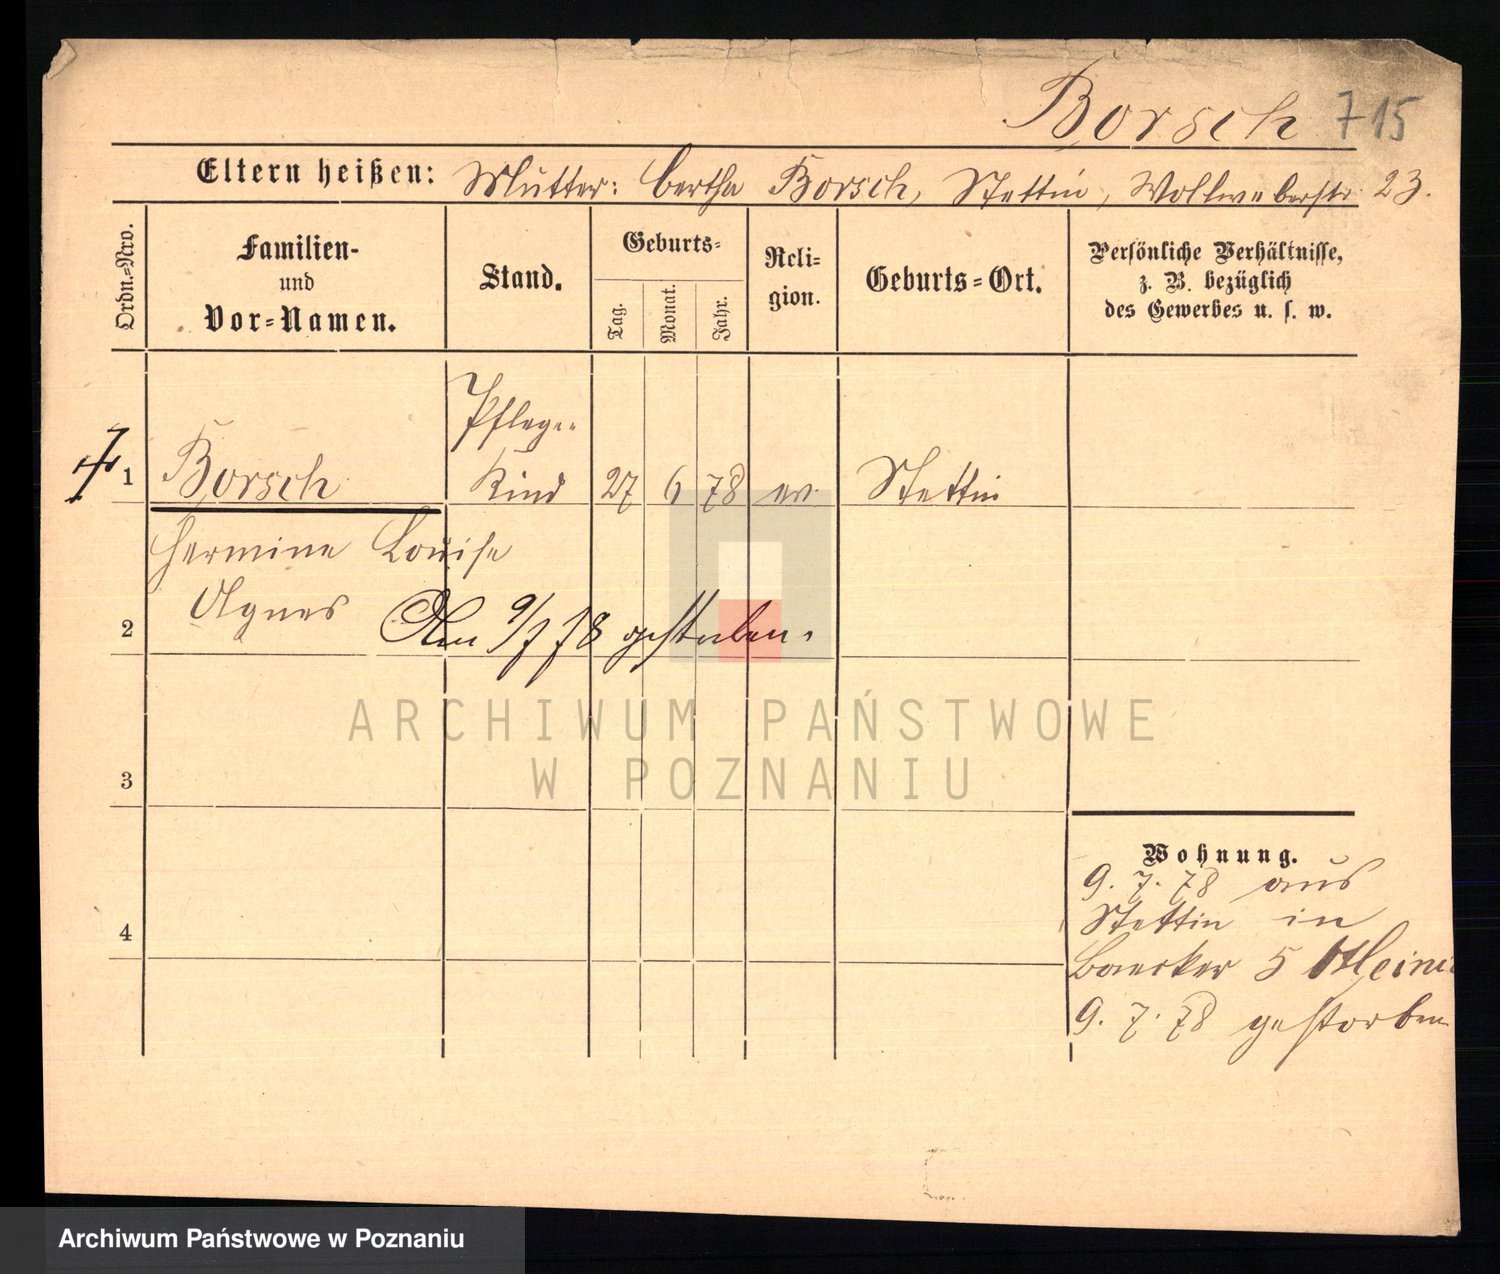 Borsch 715
Eltern heißen: Mutter: Bertha Borsch, Stettin, Wollweberstr. 23.
Ordn.=Nro.
Familien-
und
Vor=Namen.
Stand.
Geburts=
Tag.
Monat.
Jahr.
Reli=
gion.
Geburts=Ort.
Persönliche Verhältnisse,
z. B. bezüglich
des Gewerbes u. s. w.
Pflege-
1 Borsch Kind 27 6 78 ev. Stettin
Hermine Louise
Agnes
2 Am 9/7 78 gestorben.
ARCHIWUM PAŃSTWOWE
W POZNANIU
3
Wohnung.
9. 7. 78 aus
Stettin in
4
Baecker 5
9. 7. 78 gestorben
Archiwum Państwowe w Poznaniu